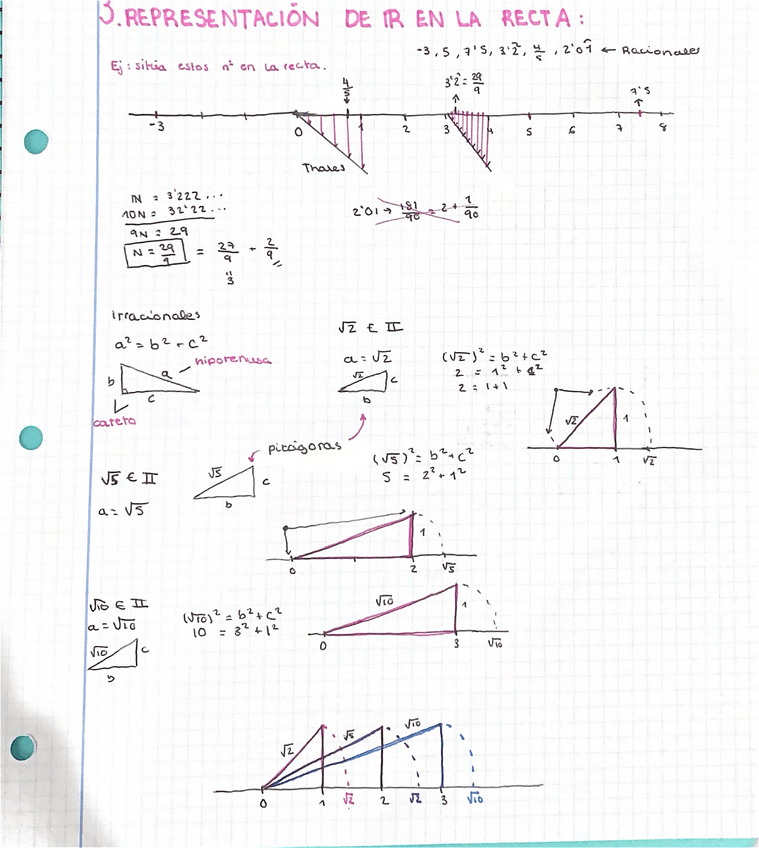 3.REPRESENTACIÓN DE IR EN LA RECTA:
-3, 5, 7'5, 3'2̂, 4/5, 2'01̂ ← Racionales
Ej: sitúa estos nº en la recta.
4/5
3'2̂ = 29/9
7'5
-3 0 1 2 3 4 5 6 7 8
Thales
N = 3'222...
10N = 32'22...
9N = 29
N = 29/9 = 27/9 + 2/9
"
3
2'01 → 181/90 = 2 + 1/90
Irracionales
a² = b² + c²
b a hipotenusa
c
cateto
√2 ∈ II
a = √2
√2 c
b
(√2)² = b² + c²
2 = 1² + 1²
2 = 1+1
√2 1
0 1 √2
pitágoras
√5 ∈ II
a = √5
√5 c
b
(√5)² = b² + c²
5 = 2² + 1²
1
0 2 √5
√10 ∈ II
a = √10
√10 c
b
(√10)² = b² + c²
10 = 3² + 1²
√10 1
0 3 √10
√2 √5 √10
0 1 √2 2 √2 3 √10